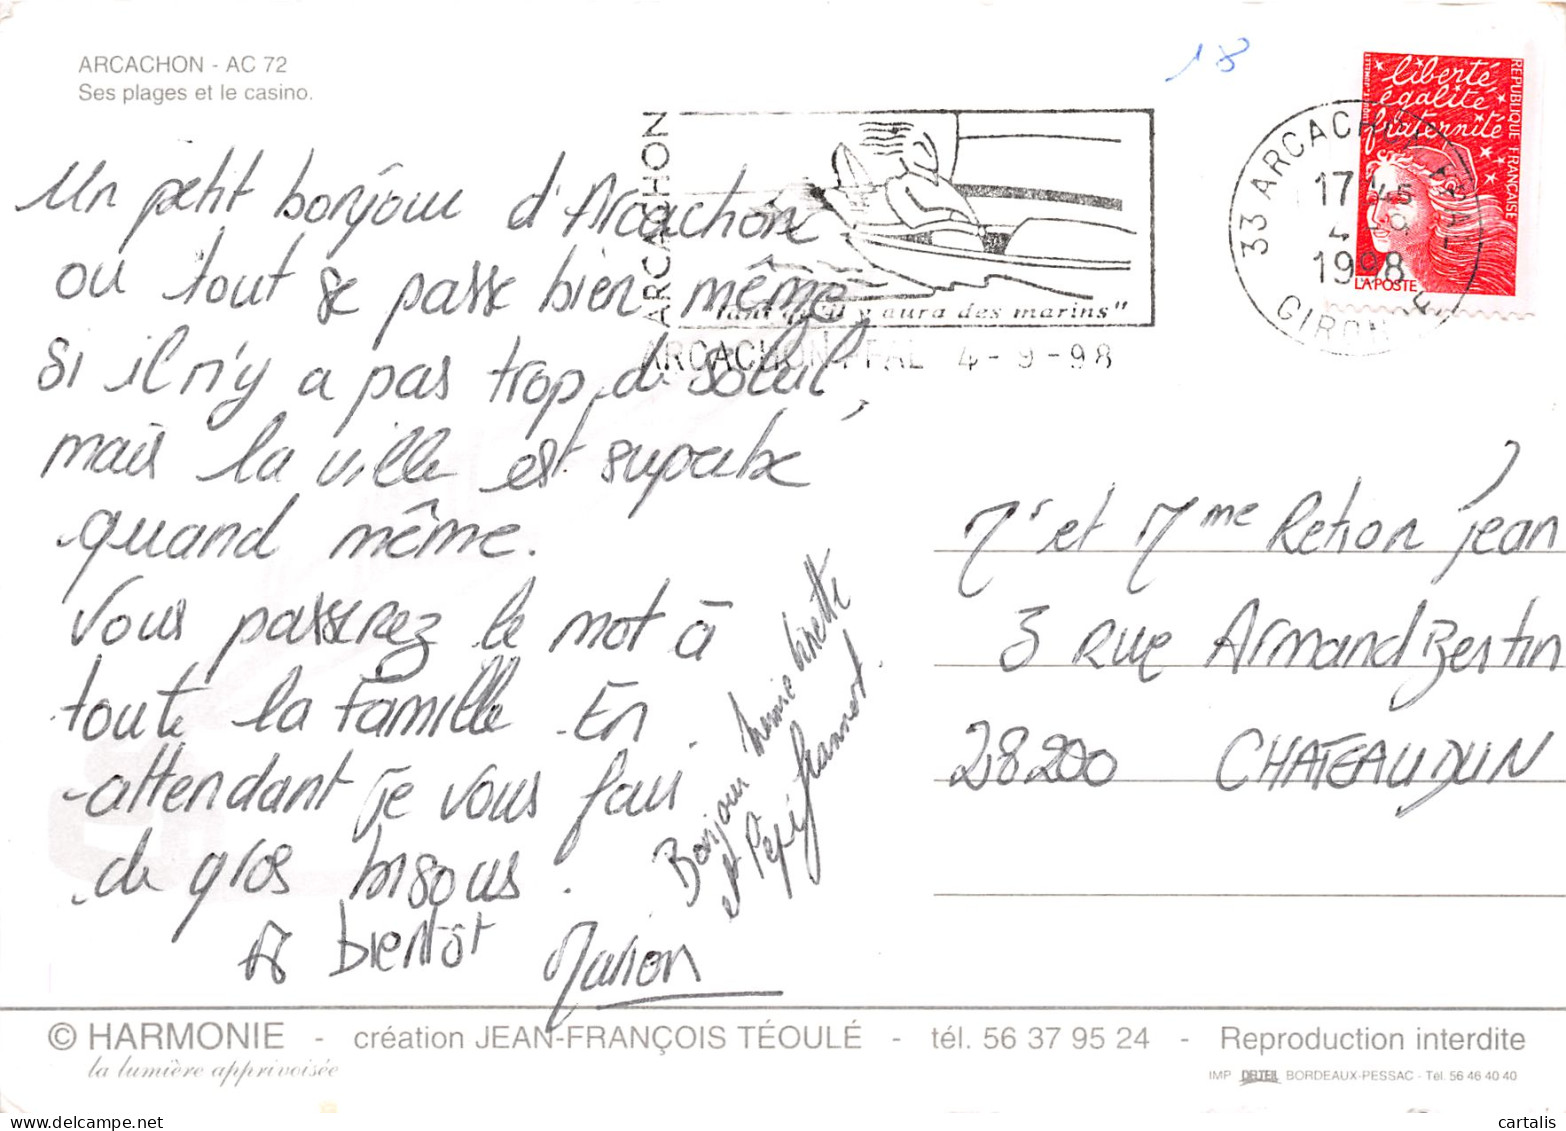 ARCACHON - AC 72
Ses plages et le casino.
18
Un petit bonjour d'Arcachon
ou tout se passe bien même
si il n'y a pas trop de soleil,
mais la ville est superbe
quand même.
Vous passerez le mot à
toute la famille. En
attendant je vous fais
de gros bisous.
A bientôt Marion
Bonjour mémie
et Pépé
ARCACHON
"Tant qu'il y aura des marins"
ARCACHON PPAL 4-9-98
33 ARCACHON PPAL
17H45
4-9
1998
GIRONDE
liberté
égalité
fraternité
RÉPUBLIQUE FRANÇAISE
LA POSTE
Mr et Mme Retion jean
3 Rue Armand Bertin
28200 CHATEAUDUN
© HARMONIE - création JEAN-FRANÇOIS TÉOULÉ - tél. 56 37 95 24 - Reproduction interdite
la lumière apprivoisée
IMP DELTEIL BORDEAUX-PESSAC - Tél. 56 46 40 40
cartalis